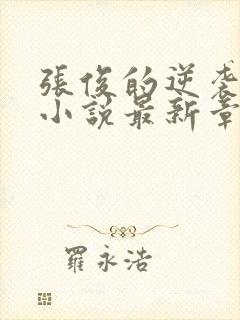 張俊的逆袭
小說最新章
羅永浩